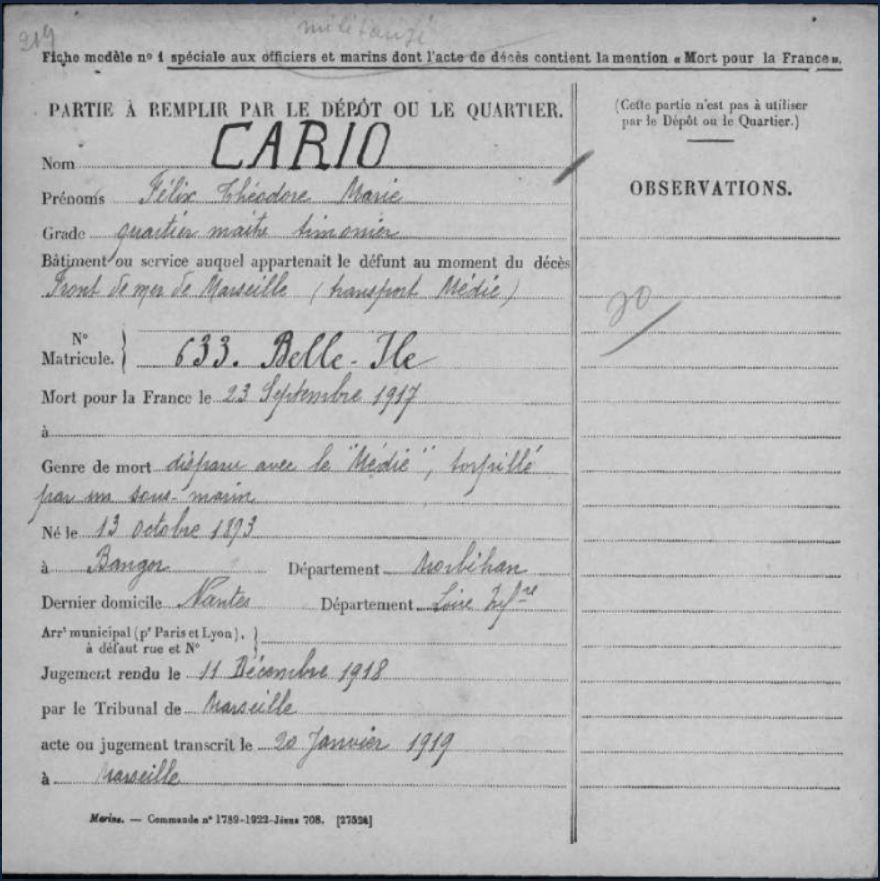 219
militarisé
Fiche modèle nº 1 spéciale aux officiers et marins dont l'acte de décès contient la mention « Mort pour la France ».
PARTIE À REMPLIR PAR LE DÉPÔT OU LE QUARTIER.
Nom CARIO
Prénoms Félix Théodore Marie
Grade quartier maitre timonier
Bâtiment ou service auquel appartenait le défunt au moment du décès
Front de mer de Marseille (transport Médie)
Nº
Matricule. } 633. Belle-Ile
Mort pour la France le 23 Septembre 1917
à
Genre de mort disparu avec le "Médie", torpillé
par un sous-marin
Né le 13 octobre 1893
à Bangor Département Morbihan
Dernier domicile Nantes Département Loire Infre
Arrt municipal (pr Paris et Lyon), }
à défaut rue et Nº
Jugement rendu le 11 Décembre 1918
par le Tribunal de Marseille
acte ou jugement transcrit le 20 Janvier 1919
à Marseille
Marine. — Commande nº 1789-1922-Jéuus 708. [27524]
(Cette partie n'est pas à utiliser
par le Dépôt ou le Quartier.)
OBSERVATIONS.
20